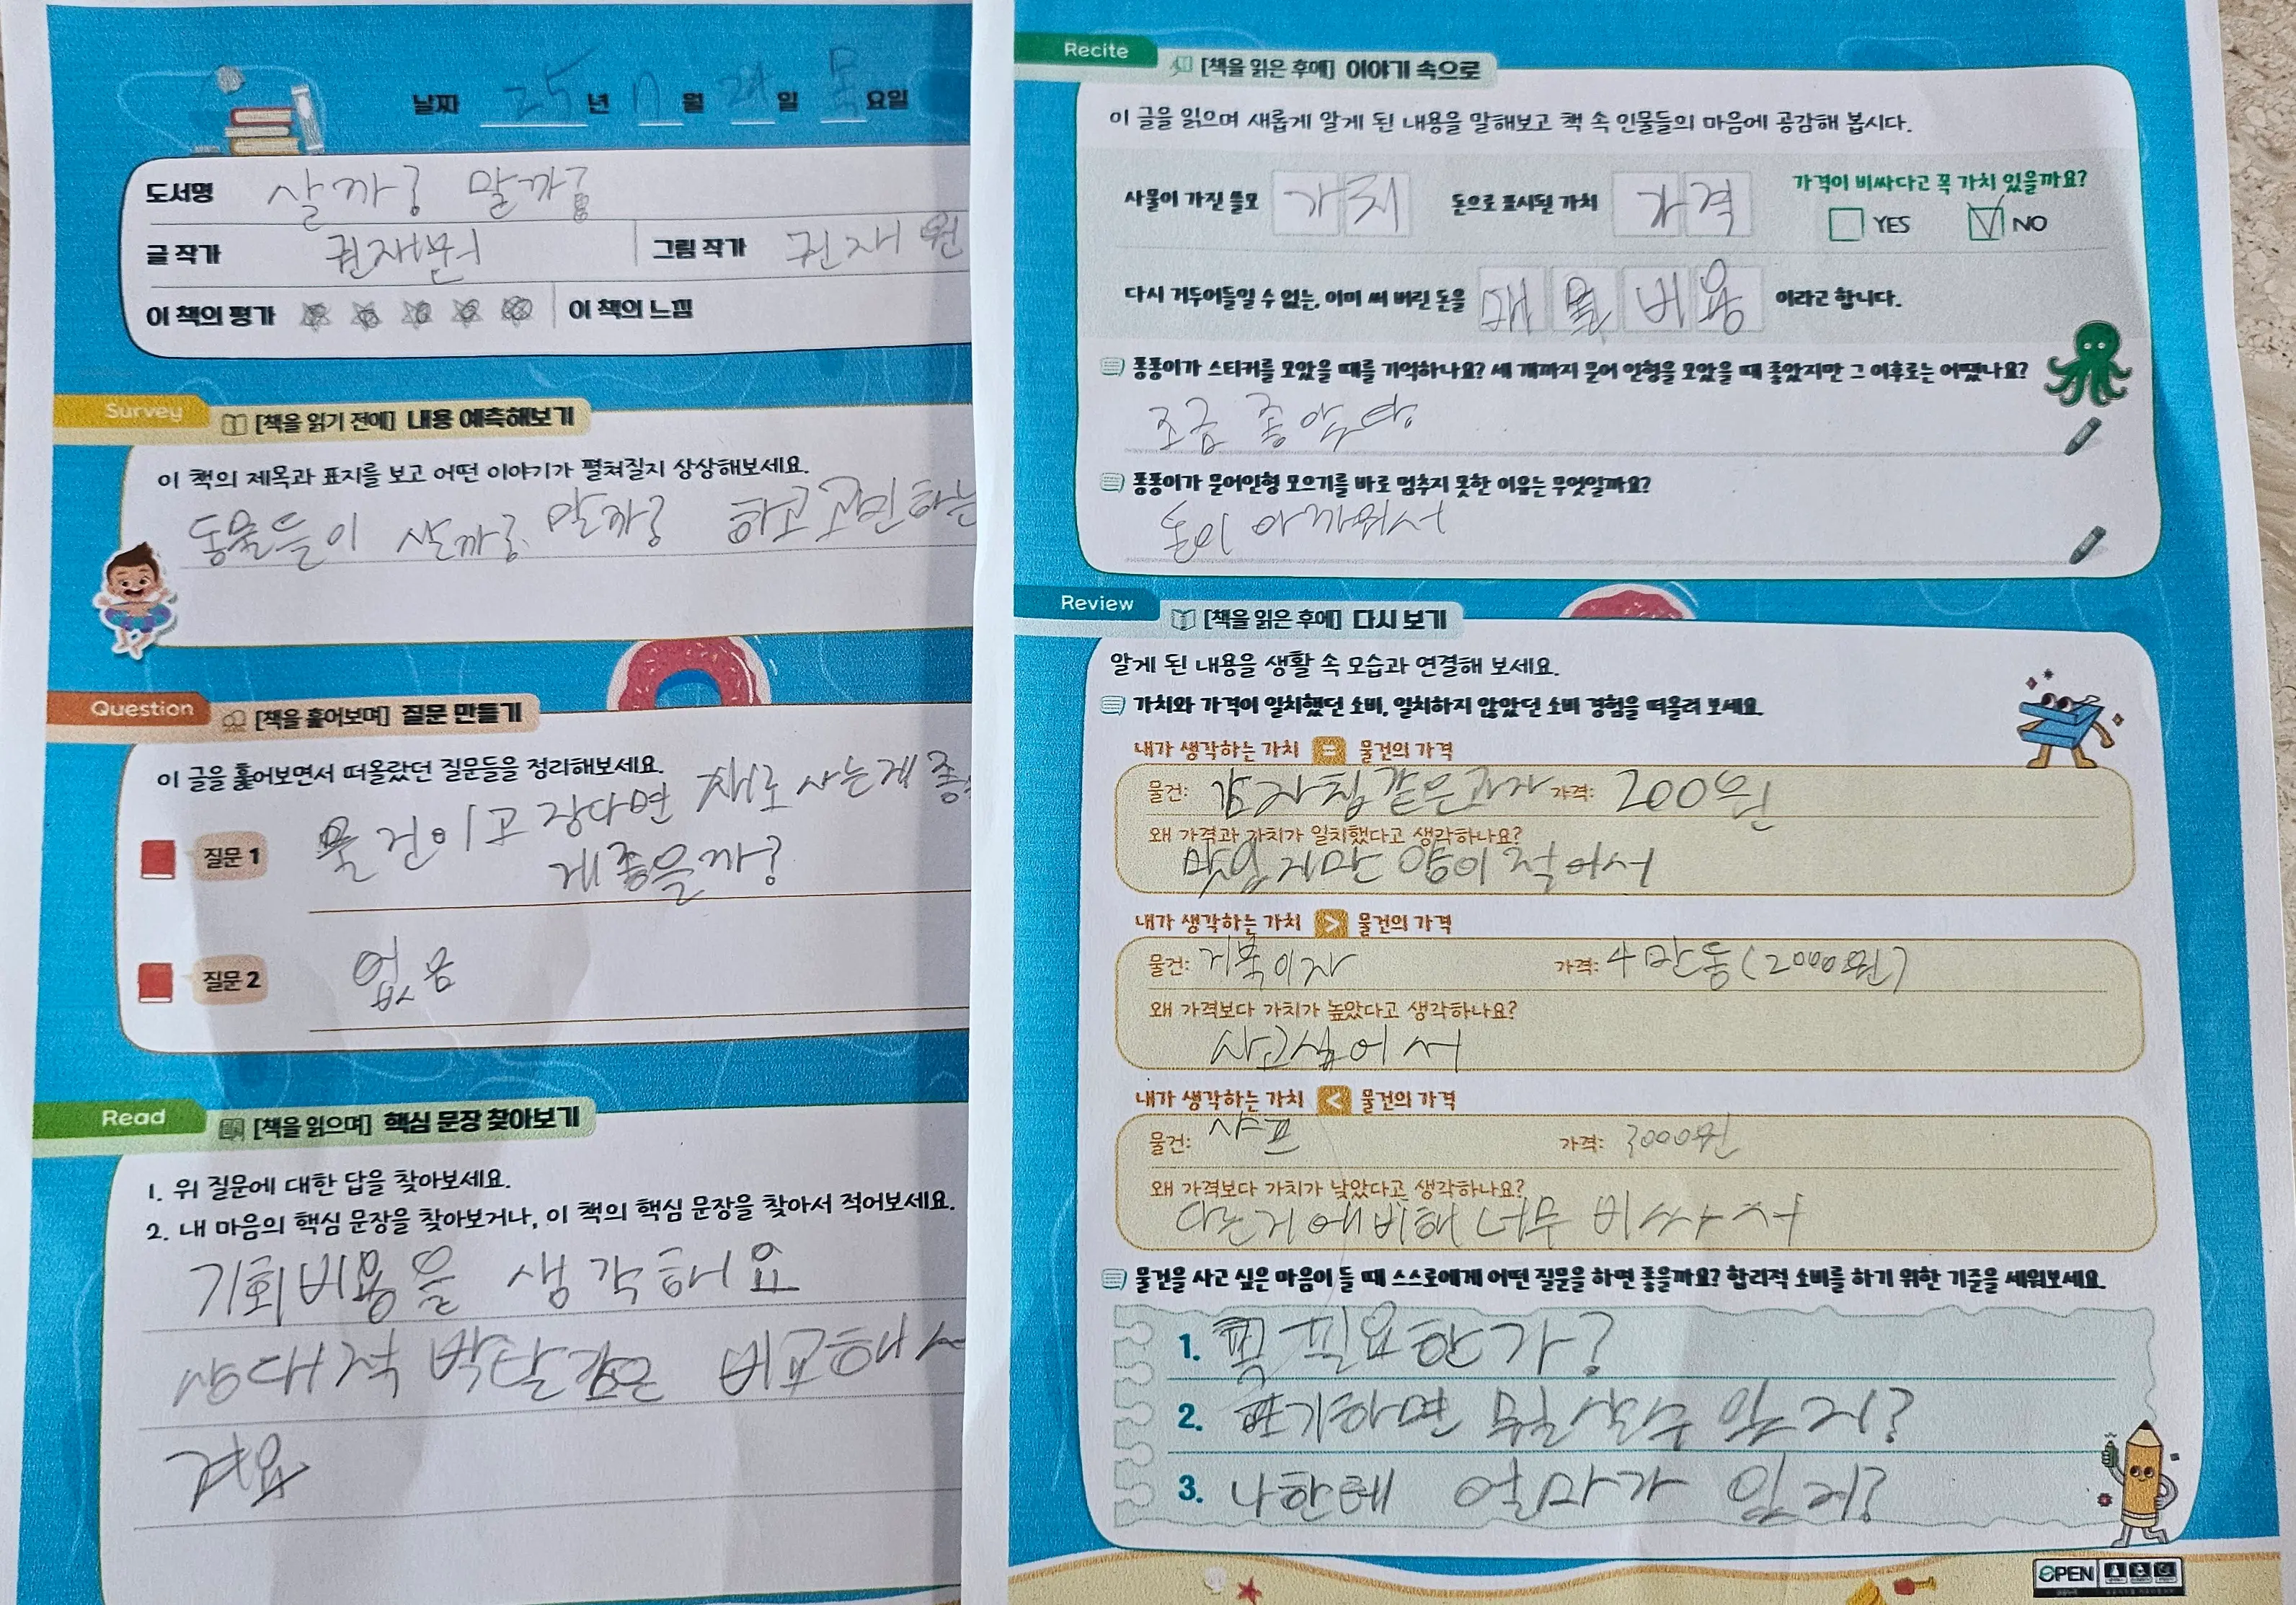 날짜 25년 월 일 목요일
도서명 살까? 말까?
글 작가 권재원 그림 작가 권재원
이 책의 평가 이 책의 느낌
Survey [책을 읽기 전에] 내용 예측해보기
이 책의 제목과 표지를 보고 어떤 이야기가 펼쳐질지 상상해보세요.
동물들이 살까? 말까? 하고 고민하는
Question [책을 훑어보며] 질문 만들기
이 글을 훑어보면서 떠올랐던 질문들을 정리해보세요.
질문 1 물건이 고장다면 새로 사는게 좋
게 좋을까?
질문 2 없음
Read [책을 읽으며] 핵심 문장 찾아보기
1. 위 질문에 대한 답을 찾아보세요.
2. 내 마음의 핵심 문장을 찾아보거나, 이 책의 핵심 문장을 찾아서 적어보세요.
기회비용을 생각해요
상대적 박탈감은 비교해서
겨요
Recite [책을 읽은 후에] 이야기 속으로
이 글을 읽으며 새롭게 알게 된 내용을 말해보고 책 속 인물들의 마음에 공감해 봅시다.
가격이 비싸다고 꼭 가치 있을까요?
사물이 가진 쓸모 가치 돈으로 표시된 가치 가격 YES NO
다시 거두어들일 수 없는, 이미 써 버린 돈을 매몰비용 이라고 합니다.
퐁퐁이가 스티커를 모았을 때를 기억하나요? 세 개까지 문어 인형을 모았을 때 좋았지만 그 이후로는 어땠나요?
조금 좋았다
퐁퐁이가 문어인형 모으기를 바로 멈추지 못한 이유는 무엇일까요?
돈이 아까워서
Review [책을 읽은 후에] 다시 보기
알게 된 내용을 생활 속 모습과 연결해 보세요.
가치와 가격이 일치했던 소비, 일치하지 않았던 소비 경험을 떠올려 보세요.
내가 생각하는 가치 = 물건의 가격
물건: 감자칩같은과자 가격: 200원
왜 가격과 가치가 일치했다고 생각하나요?
맛있지만 양이 적어서
내가 생각하는 가치 > 물건의 가격
물건: 거북이자 가격: 4만동(2000원)
왜 가격보다 가치가 높았다고 생각하나요?
사고싶어서
내가 생각하는 가치 < 물건의 가격
물건: 샤프 가격: 3000원
왜 가격보다 가치가 낮았다고 생각하나요?
다른거에비해 너무 비싸서
물건을 사고 싶은 마음이 들 때 스스로에게 어떤 질문을 하면 좋을까요? 합리적 소비를 하기 위한 기준을 세워보세요.
1. 꼭 필요한가?
2. 포기하면 뭘 살수 있지?
3. 나한테 얼마가 있지?
OPEN